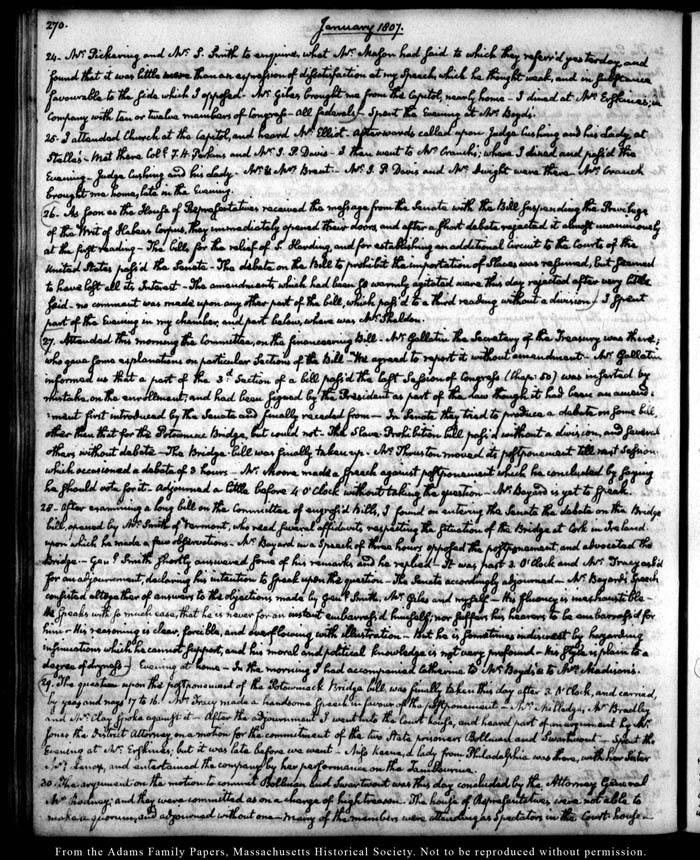 270. January 1807.
24. Mr. Pickering and Mr. S. Smith to enquire, what Mr. Mason had said to which they referr'd yesterday, and
found that it was little more than an expression of dissatisfaction at my Speech, which he thought weak, and in substance
favourable to the side which I opposed. Mr. Giles brought me from the Capitol, nearly home - I dined at Mr. Erskine's; in
company with ten or twelve members of Congress - all federal - Spent the Evening at Mr. Boyd's.
25. I attended Church at the Capitol, and heard Mr. Elliot. Afterwards called upon Judge Cushing and his Lady, at
Stelle's - Met there Coll. T. H. Perkins and Mr. J. P. Davis - I then went to Mr. Cranch's; where I dined and pass'd the
Evening - Judge Cushing and his Lady - Mr. & Mrs. Brent - Mr. J. P. Davis and Mr. Dwight were there - Mr. Cranch
brought me home, late in the Evening.
26. As soon as the House of Representatives received the message from the Senate with the Bill suspending the Privilege
of the Writ of Habeas Corpus, they immediately opened their doors, and after a short debate rejected it almost unanimously
at the first reading - The bills for the relief of S. Harding, and for establishing an additional Circuit to the Courts of the
United States pass'd the Senate - The debate on the Bill to prohibit the importation of Slaves was resumed, but seemed
to have lost all its Interest - The amendments which had been so warmly agitated were this day rejected after very little
said - no comment was made upon any other part of the bill, which pass'd to a third reading without a division) I spent
part of the Evening in my chamber, and part below, where was Mr. Sheldon.
27. Attended this morning the Committee, on the financiering Bill - Mr. Gallatin the Secretary of the Treasury was there;
who gave some explanations on particular Sections of the Bill - We agreed to report it without amendment - Mr. Gallatin
informed us that a part of the 3d. Section of a bill pass'd the last Session of Congress (Chap: 50) was inserted by
mistake, on the enrollment; and had been signed by the President as part of the law though it had been an amend:
:ment first introduced by the Senate and finally receeded from - In Senate they tried to produce a debate on some bill,
other than that for the Potowmac Bridge, but could not - The Slave-Prohibition bill pass'd without a division, and several
others without debate - The Bridge bill was finally taken up - Mr. Thruston moved its postponement till next Session
which occasioned a debate of 3 hours - Mr. Moore made a speech against postponement which he concluded by saying
he should vote for it - adjourned a little before 4 O'Clock without taking the question - Mr. Bayard is yet to speak.
28. After examining a long bill on the Committee of engross'd bills, I found on entering the Senate the debate on the Bridge
bill, opened by Mr. Smith of Vermont, who read several affidavits respecting the situation of the Bridge at Cork in Ireland.
upon which he made a few observations - Mr. Bayard in a speech of three hours opposed the postponement, and advocated the
Bridge - Genl. Smith shortly answered some of his remarks and he replied - It was past 3. O'Clock and Mr. Tracy ask'd
for an adjournment, declaring his intention to speak upon the question - The Senate accordingly adjourned - Mr. Bayard's Speech
consisted altogether of answers to the objections made by Genl. Smith, Mr. Giles and myself - His fluency is inexhaustible -
He speaks with so much ease, that he is never for an instant embarrass'd himself; nor suffers his hearers to be embarrass'd for
him - His reasoning is clear, forcible, and overflowing with illustration - But he is sometimes indiscreet by hazarding
insinuations which he cannot support, and his moral and political knowledge is not very profound - his style is plain to a
degree of dryness) Evening at home - In the morning I had accompanied Catherine to Mr. Boyd's & to Mr. Madison's.
29. The question upon the postponement of the Potowmack Bridge bill, was finally taken this day after 3. O'Clock, and carried,
by yeas and nays 17 to 16. Mr. Tracy made a handsome speech in favour of the postponement - Mr. Milledge, Mr. Bradley
and Mr. Clay spoke against it - After the adjournment I went into the Court house, and heard part of an argument by Mr.
Jones the District Attorney on a motion for the commitment of the two State prisoners Bollman and Swartwout - Spent the
Evening at Mr. Erskine's; but it was late before we went - Miss Keene, a Lady from Philadelphia was there, with her Sister
Mrs. Lenox, and entertained the company by her performance on the Tambourine.
30. The argument on the motion to commit Bollman and Swartwout was this day concluded by the Attorney General
Mr. Rodney; and they were committed as on a charge of high treason. The house of Representatives were not able to
make a quorum, and adjourned without one - many of the members were attending as Spectators in the Court-house -
From the Adams Family Papers, Massachusetts Historical Society. Not to be reproduced without permission.